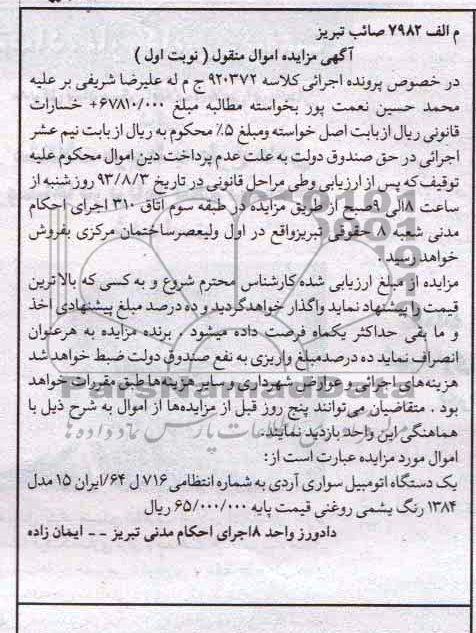 م الف ۷۹۸۲ صائب تبریز
آگهی مزایده اموال منقول ( نوبت اول )
در خصوص پرونده اجرائی کلاسه ۹۲۰۳۷۲ ج م له علیرضا شریفی بر علیه
محمد حسین نعمت پور بخواسته مطالبه مبلغ ۶۷۸۱۰/۰۰۰+ خسارات
قانونی ریال از بابت اصل خواسته ومبلغ ۵٪ محکوم به ریال از بابت نیم عشر
اجرائی در حق صندوق دولت به علت عدم پرداخت دین اموال محکوم علیه
توقیف که پس از ارزیابی وطی مراحل قانونی در تاریخ ۹۳/۸/۳ روز شنبه از
ساعت ۸الی ۹صبح از طریق مزایده در طبقه سوم اتاق ۳۱۰ اجرای احکام
مدنی شعبه ۸ حقوقی تبریزواقع در اول ولیعصرساختمان مرکزی بفروش
خواهد رسید .
مزایده از مبلغ ارزیابی شده کارشناس محترم شروع و به کسی که بالاترین
قیمت را پیشنهاد نماید واگذار خواهدگردید و ده درصد مبلغ پیشنهادی اخذ
و ما بقی حداکثر یکماه فرصت داده میشود . برنده مزایده به هرعنوان
انصراف نماید ده درصدمبلغ واریزی به نفع صندوق دولت ضبط خواهد شد
هزینه‌های اجرائی و عوارض شهرداری و سایر هزینه‌ها طبق مقررات خواهد
بود . متقاضیان می‌توانند پنج روز قبل از مزایده‌ها از اموال به شرح ذیل با
هماهنگی این واحد بازدید نمایند.
اموال مورد مزایده عبارت است از:
یک دستگاه اتومبیل سواری آردی به شماره انتظامی ۷۱۶ ل ۶۴/ایران ۱۵ مدل
۱۳۸۴ رنگ یشمی روغنی قیمت پایه ۶۵/۰۰۰/۰۰۰ ریال
دادورز واحد ۸اجرای احکام مدنی تبریز -- ایمان زاده
ParsNamadData